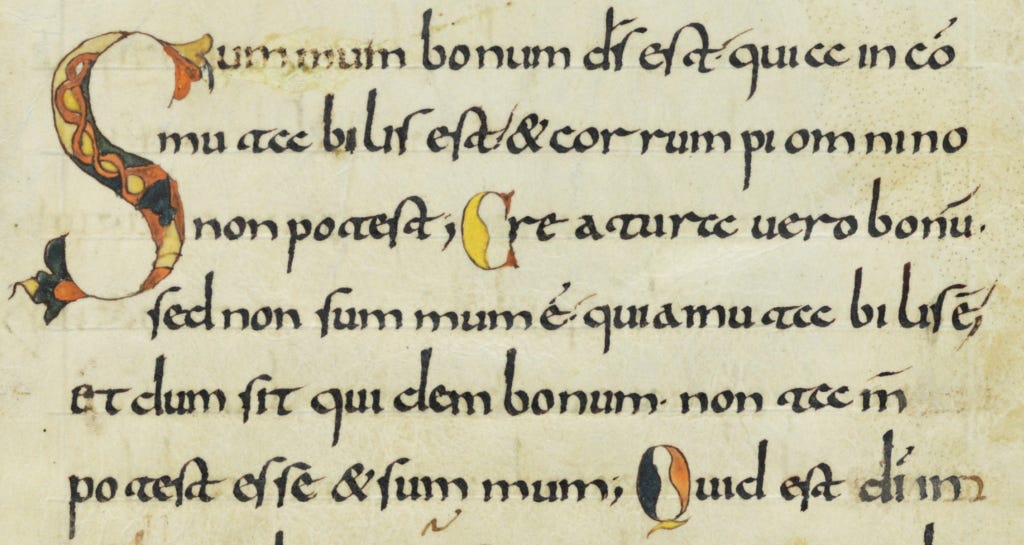 Summum bonum d̄s est· quia incō
mutabilis est·/ & corrumpi omnino
non potest; Creaturae vero bonū·
sed non summum ē· quia mutabilis ē;
et dum sit quidem bonum· non tam̄
potest esse & summum; Quid est d̄i im